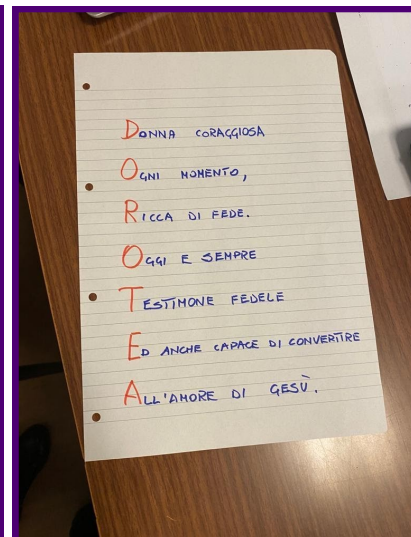 DONNA CORAGGIOSA
OGNI MOMENTO,
RICCA DI FEDE.
OGGI E SEMPRE
TESTIMONE FEDELE
ED ANCHE CAPACE DI CONVERTIRE
ALL'AMORE DI GESÙ.